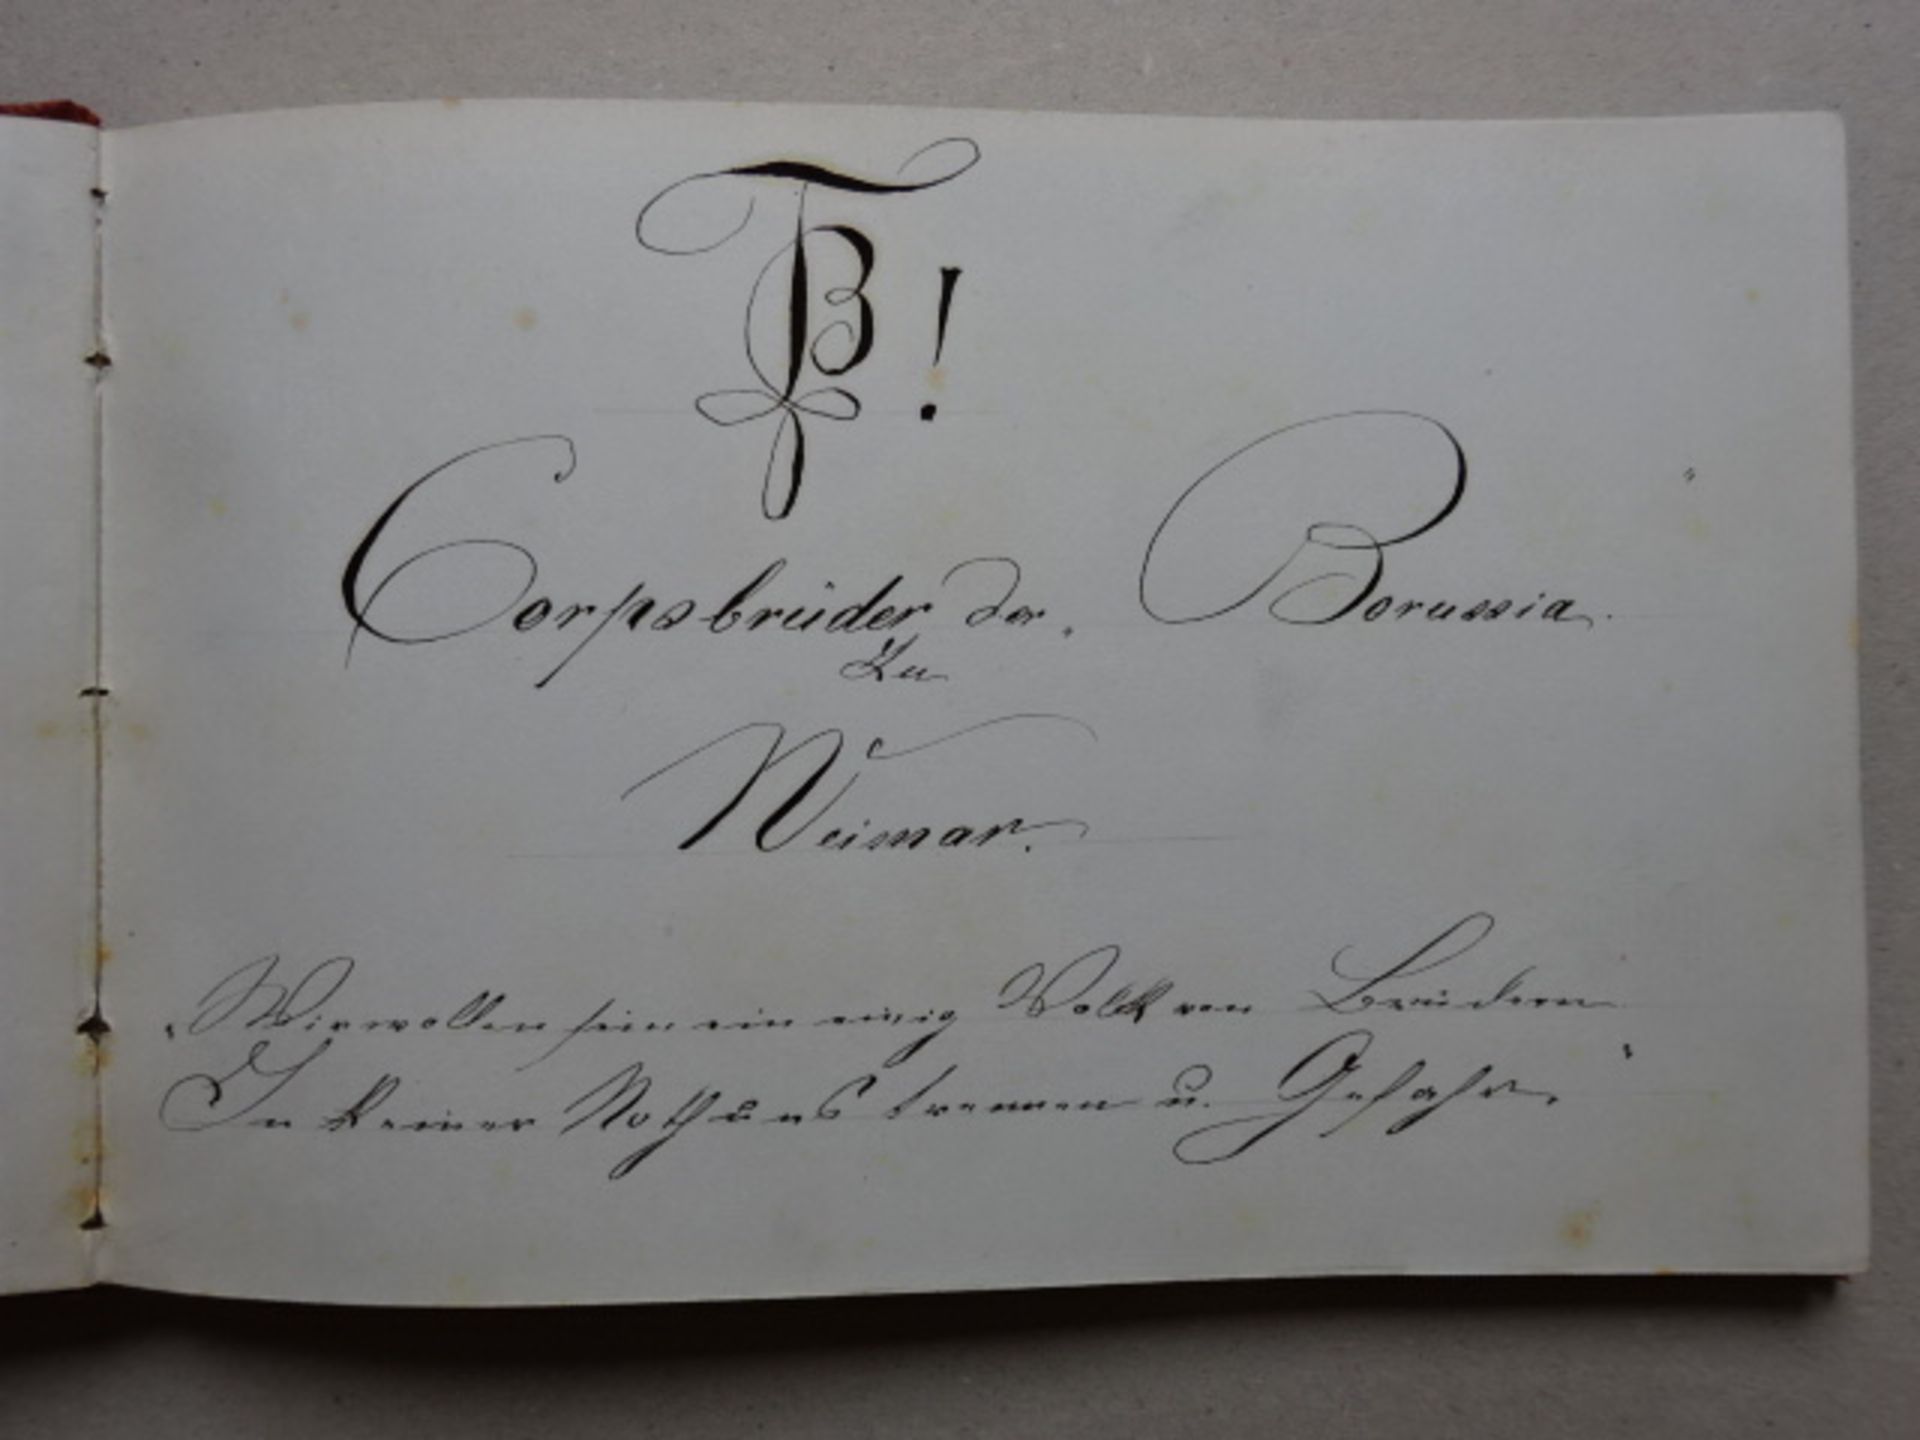 B!
Corpsbrüder der Borussia.
Zu
Weimar.
„Wir wollen sein ein einig Volk von Brüdern
In keiner Noth uns trennen u. Gefahr.“